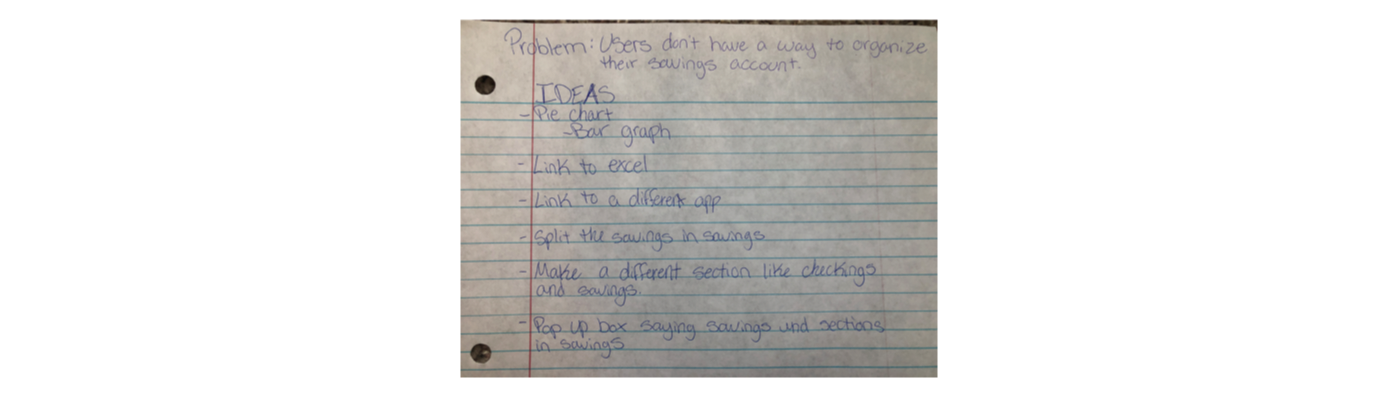 Problem: Users don't have a way to organize
their savings account.
IDEAS
- Pie chart
- Bar graph
- Link to excel
- Link to a different app
- Split the savings in savings
- Make a different section like checkings
and savings.
- Pop up box saying savings und sections
in savings